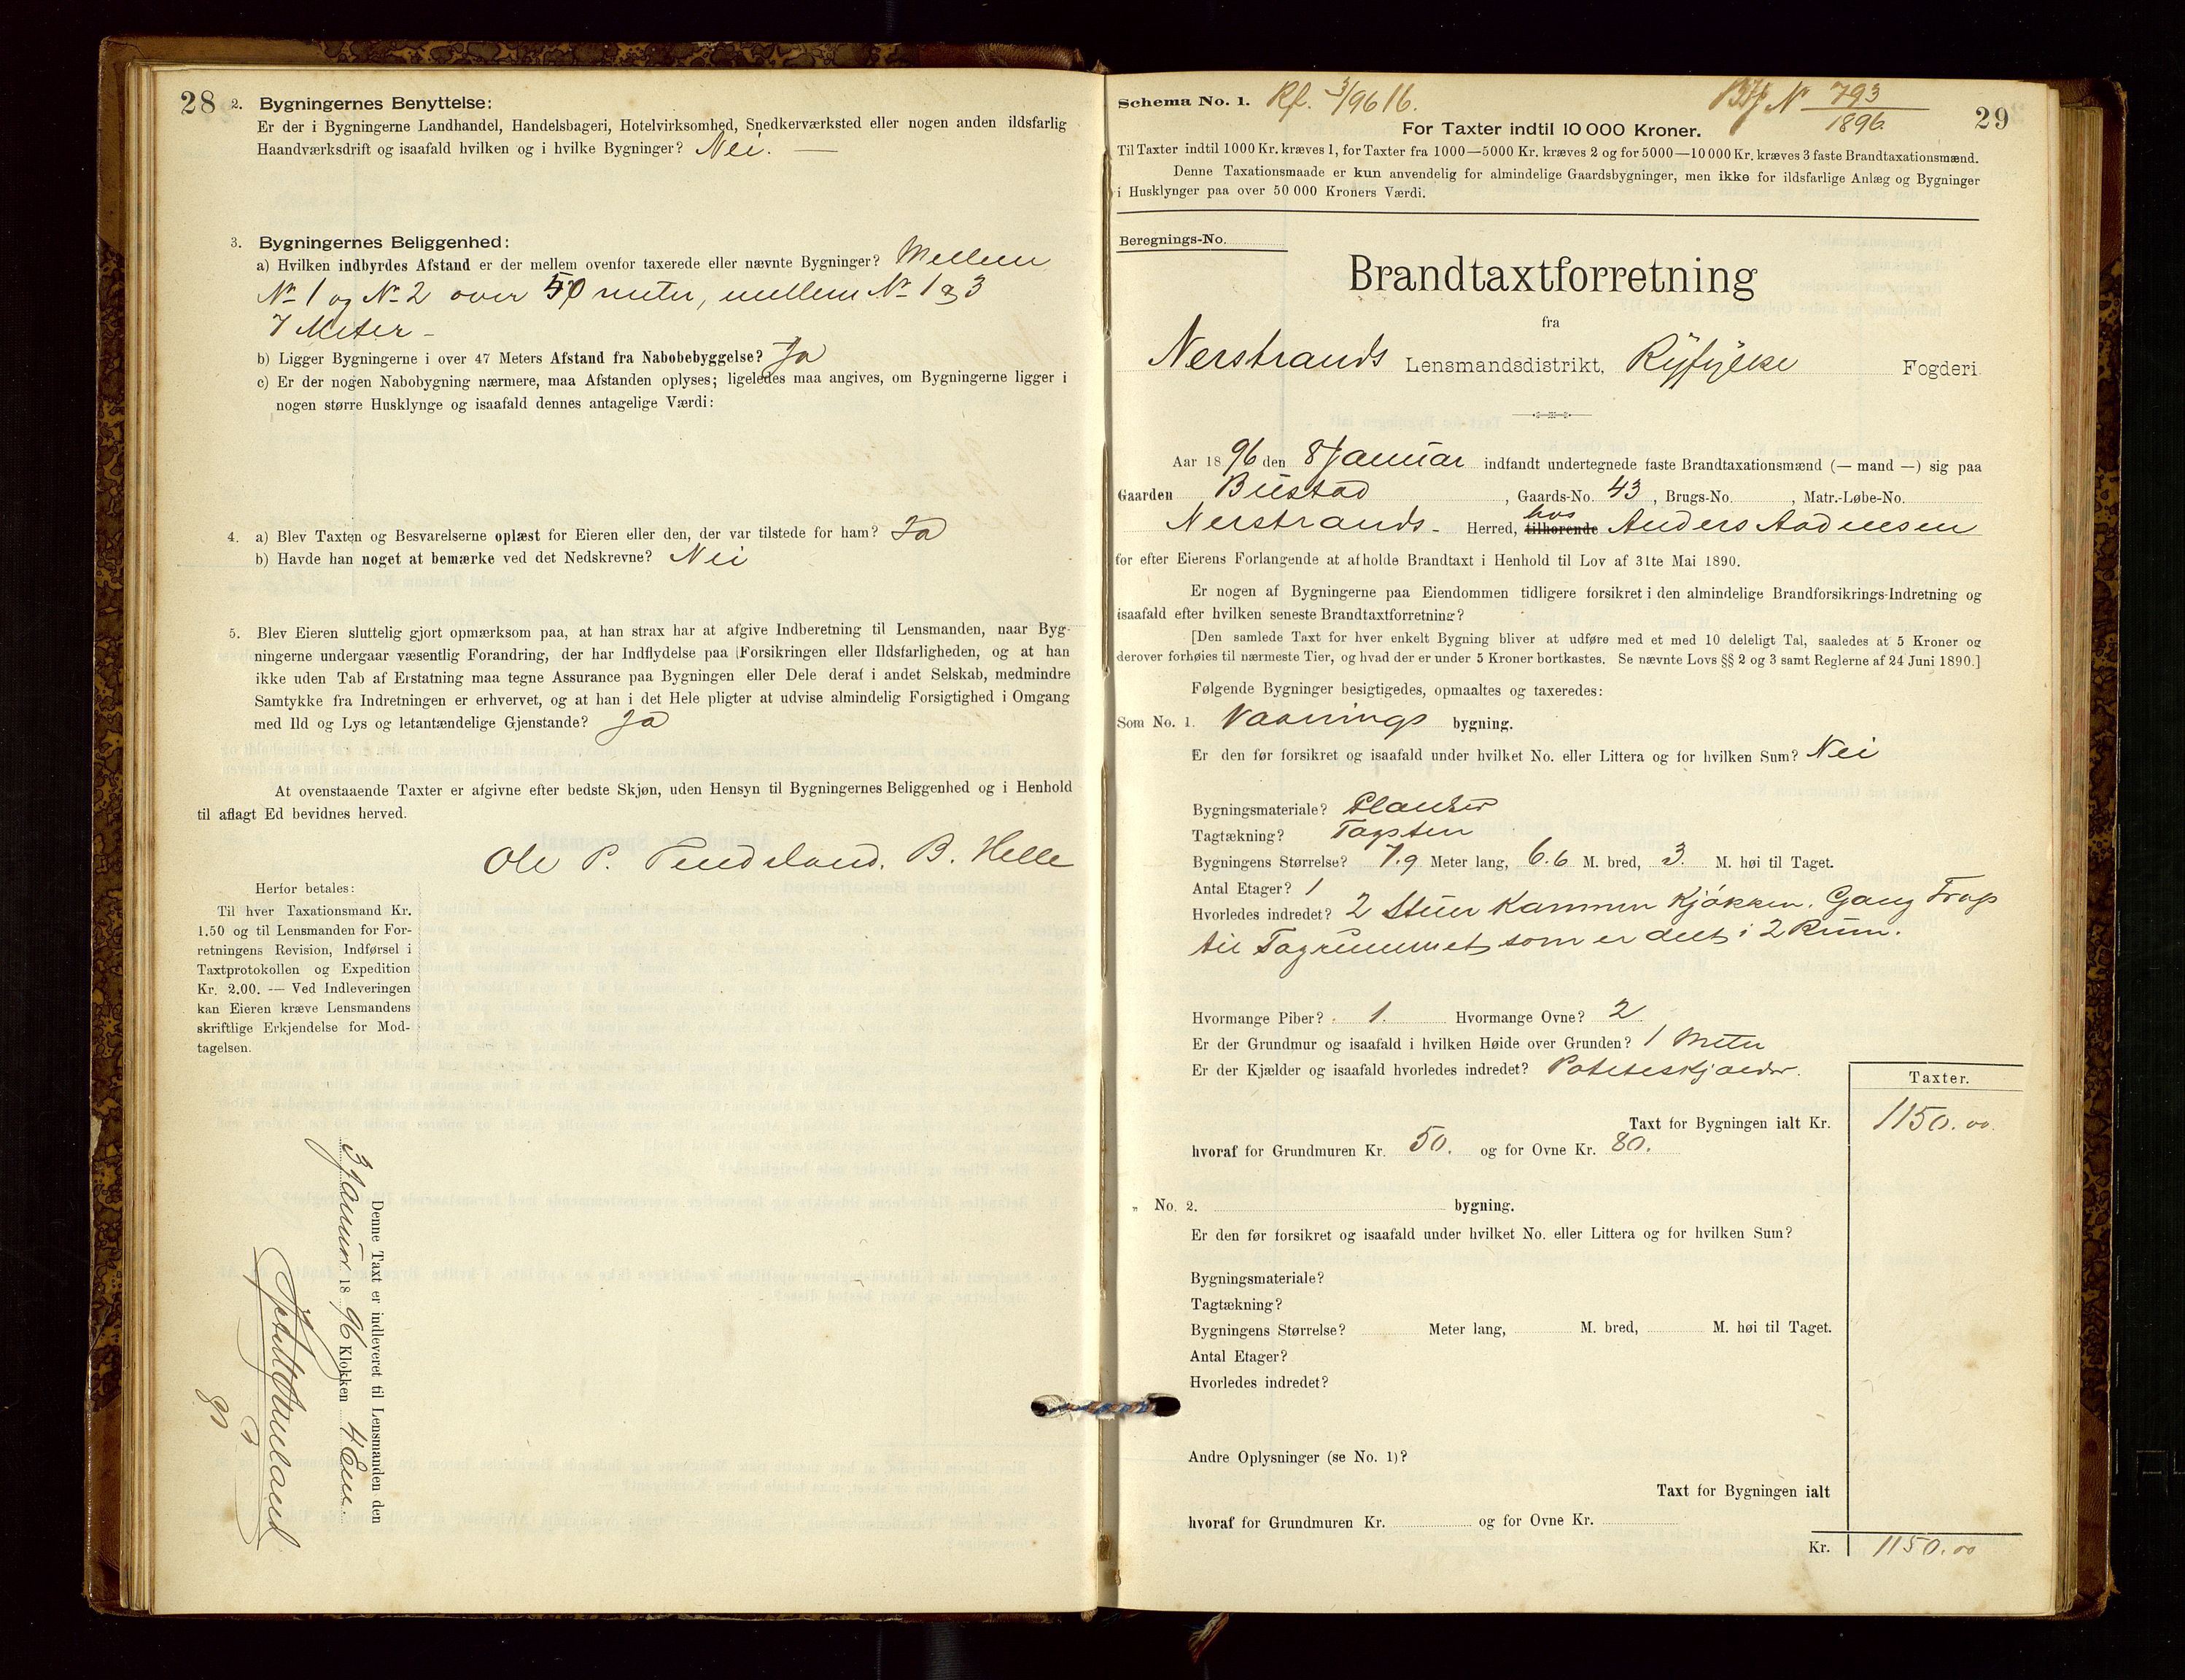 28 2. Bygningernes Benyttelse:
Er der i Bygningerne Landhandel, Handelsbageri, Hotelvirksomhed, Snedkerværksted eller nogen anden ildsfarlig
Haandværksdrift og isaafald hvilken og i hvilke Bygninger? Nei. —
3. Bygningernes Beliggenhed:
a) Hvilken indbyrdes Afstand er der mellem ovenfor taxerede eller nævnte Bygninger? Mellem
No 1 og No 2 over 50 meter, mellem No 1 og 3
7 Meter –
b) Ligger Bygningerne i over 47 Meters Afstand fra Nabobebyggelse? Ja
c) Er der nogen Nabobygning nærmere, maa Afstanden oplyses; ligeledes maa angives, om Bygningerne ligger i
nogen større Husklynge og isaafald dennes antagelige Værdi:
4. a) Blev Taxten og Besvarelserne oplæst for Eieren eller den, der var tilstede for ham? Ja
b) Havde han noget at bemærke ved det Nedskrevne? Nei
5. Blev Eieren sluttelig gjort opmærksom paa, at han strax har at afgive Indberetning til Lensmanden, naar Byg-
ningerne undergaar væsentlig Forandring, der har Indflydelse paa Forsikringen eller Ildsfarligheden, og at han
ikke uden Tab af Erstatning maa tegne Assurance paa Bygningen eller Dele deraf i andet Selskab, medmindre
Samtykke fra Indretningen er erhvervet, og at han i det Hele pligter at udvise almindelig Forsigtighed i Omgang
med Ild og Lys og letantændelige Gjenstande? Ja
At ovenstaaende Taxter er afgivne efter bedste Skjøn, uden Hensyn til Bygningernes Beliggenhed og i Henhold
til aflagt Ed bevidnes herved.
Ole P. B. Helle
Herfor betales:
Til hver Taxationsmand Kr.
1.50 og til Lensmanden for For-
retningens Revision, Indførsel i
Taxtprotokollen og Expedition
Kr. 2.00. — Ved Indleveringen
kan Eieren kræve Lensmandens
skriftlige Erkjendelse for Mod-
tagelsen.
Denne Taxt er indleveret til Lensmanden den
3 Januar 1896 Klokken 4 Em.
Schema No. 1. Rf. 3/96 16. Bf No 793/1896 29
For Taxter indtil 10 000 Kroner.
Til Taxter indtil 1000 Kr. kræves 1, for Taxter fra 1000—5000 Kr. kræves 2 og for 5000—10 000 Kr. kræves 3 faste Brandtaxationsmænd.
Denne Taxationsmaade er kun anvendelig for almindelige Gaardsbygninger, men ikke for ildsfarlige Anlæg og Bygninger
i Husklynger paa over 50 000 Kroners Værdi.
Beregnings-No.
Brandtaxtforretning
fra
Nerstrands Lensmandsdistrikt, Ryfylke Fogderi
Aar 1896 den 8 Januar indfandt undertegnede faste Brandtaxationsmænd (— mand —) sig paa
Gaarden Bustad, Gaards-No. 43, Brugs-No. , Matr.-Løbe-No.
Nerstrands – Herred, tilhørende hos Anders Aadnesen
for efter Eierens Forlangende at afholde Brandtaxt i Henhold til Lov af 31te Mai 1890.
Er nogen af Bygningerne paa Eiendommen tidligere forsikret i den almindelige Brandforsikrings-Indretning og
isaafald efter hvilken seneste Brandtaxtforretning?
[Den samlede Taxt for hver enkelt Bygning bliver at udføre med et med 10 deleligt Tal, saaledes at 5 Kroner og
derover forhøies til nærmeste Tier, og hvad der er under 5 Kroner bortkastes. Se nævnte Lovs §§ 2 og 3 samt Reglerne af 24 Juni 1890.]
Følgende Bygninger besigtigedes, opmaaltes og taxeredes:
Som No. 1. Vaanings bygning.
Er den før forsikret og isaafald under hvilket No. eller Littera og for hvilken Sum? Nei
Bygningsmateriale? Planker
Tagtækning? Tagsten
Bygningens Størrelse? 7.9 Meter lang, 6.6 M. bred, 3. M. høi til Taget.
Antal Etager? 1
Hvorledes indredet? 2 Stuer Kammer Kjøkken, Gang Trap
til Tagrummet som er delt i 2 Rum.
Hvormange Piber? 1. Hvormange Ovne? 2
Er der Grundmur og isaafald i hvilken Høide over Grunden? 1 Meter
Er der Kjælder og isaafald hvorledes indredet? Poteteskjælder.
Taxter.
Taxt for Bygningen ialt Kr. 1150.00.
hvoraf for Grundmuren Kr. 50. og for Ovne Kr. 80.
„ No. 2. bygning.
Er den før forsikret og isaafald under hvilket No. eller Littera og for hvilken Sum?
Bygningsmateriale?
Tagtækning?
Bygningens Størrelse? Meter lang, M. bred, M. høi til Taget.
Antal Etager?
Hvorledes indredet?
Andre Oplysninger (se No. 1)?
Taxt for Bygningen ialt
hvoraf for Grundmuren Kr. og for Ovne Kr.
Kr. 1150.00